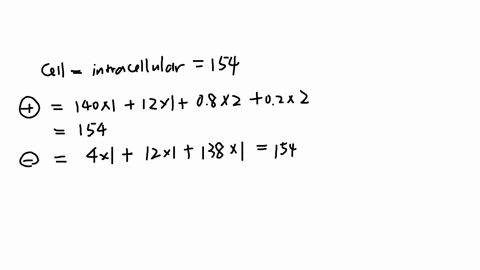 Cell = intracellular = 154
⊕ = 140x1 + 12x1 + 0.8x2 + 0.2x2
= 154
⊖ = 4x1 + 12x1 + 138x1 = 154